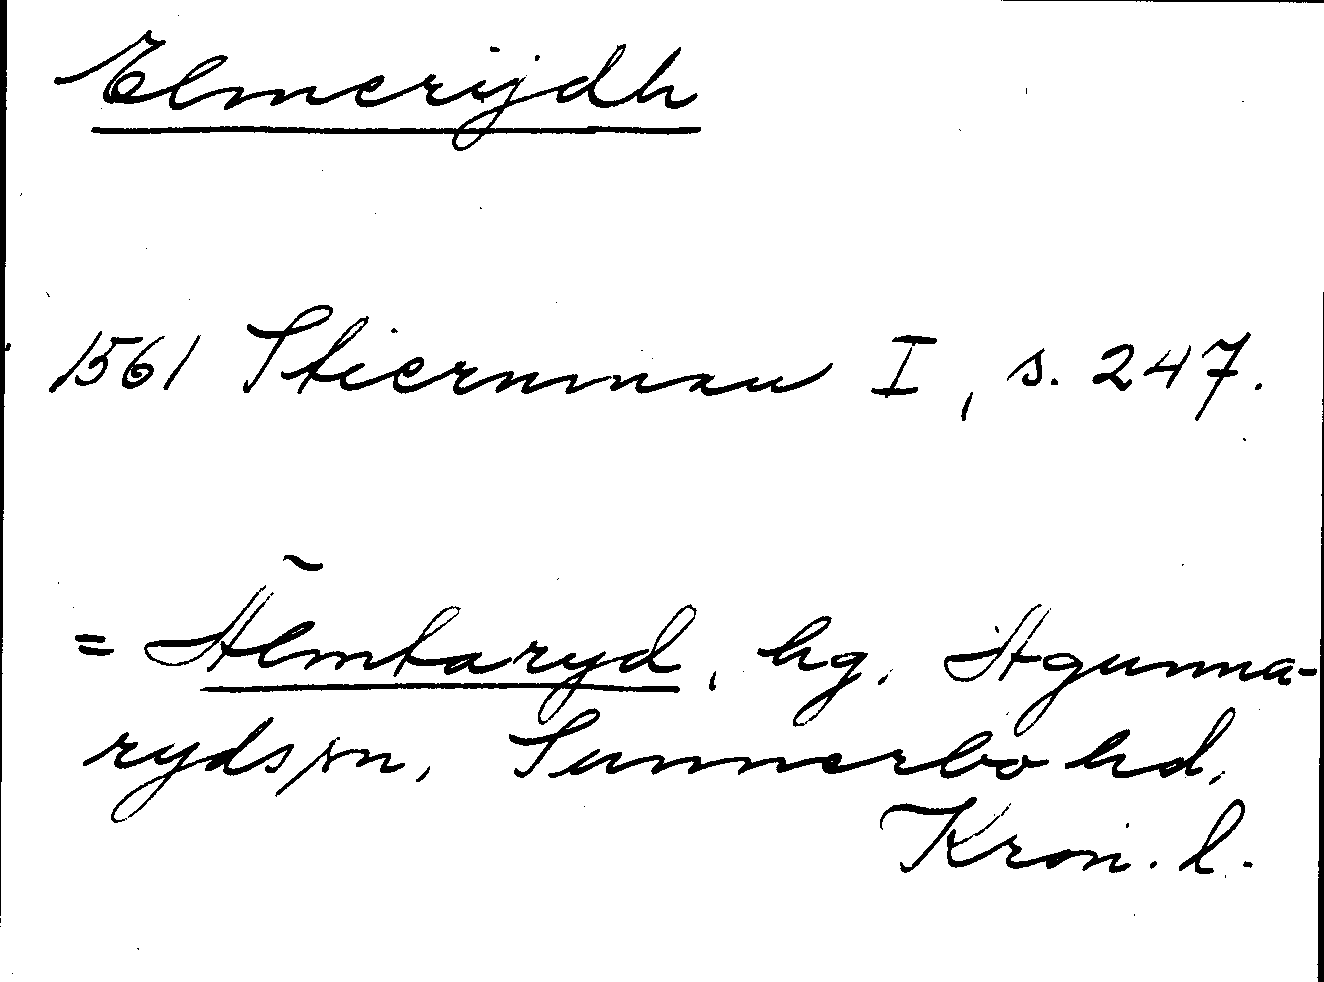 Elmerijdh
1561 Stiernman I, s. 247.
= Älmtaryd, hg, Agunna-
rydssn, Sunnerbo hd,
Kron. l.